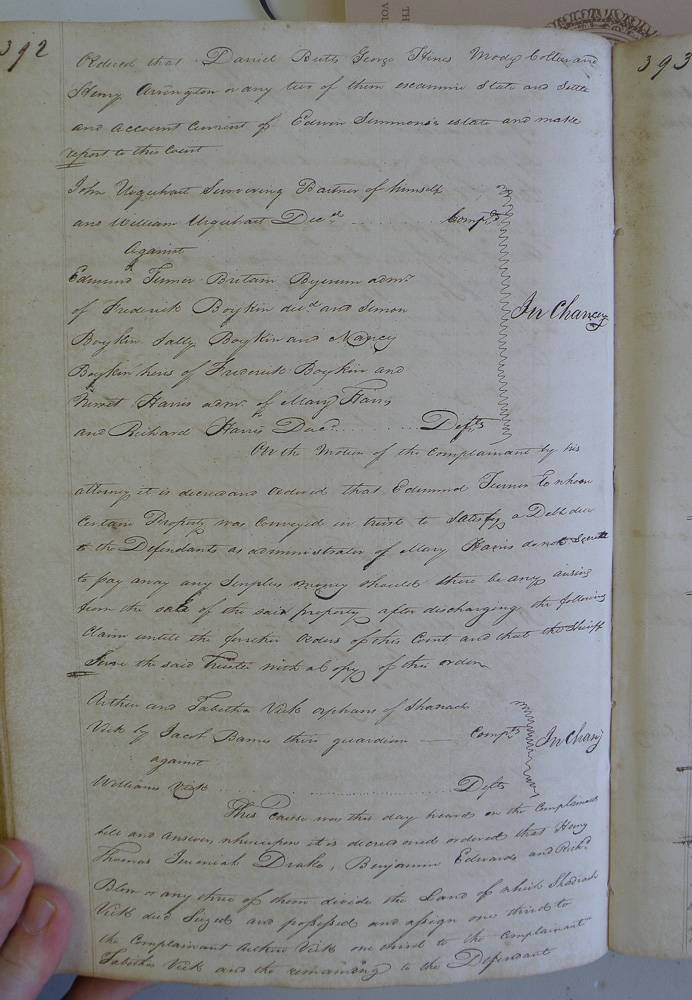 392
Ordered that Daniel Butts George Hines Mody Collier and
Henry Arrington or any two of them examine State and Settle
and account Current of Edwin Simmons's estate and make
report to this Court
John Urquhart Surviving Partner of himself
and William Urquhart Dec.d Comp.ts
Against
Edmund Turner Britain Bynum adm.r
of Frederick Boykin dec.d and Simon
Boykin Sally Boykin and Nancy
Boykin heirs of Frederick Boykin and
Harris adm.r of Mary Harris
and Richard Harris Dec.d Defts
In Chancey
On the Motion of the Complainant by his
attorney it is decree and ordered that Edmund Turner to whom
Certain Property was Conveyed in trust to Satisfy a Debt due
to the Defendants as administrator of Mary Harris do not
to pay away any Surplus money should there be any arising
from the sale of the said property after discharging the following
Claim untill the further Orders of this Court and that the Sheriff
Serve the said Trustee with a Copy of this order
Arthur and Tabitha Vick orphans of Shadrach
Vick by Jacob Barnes their guardian Comp.ts
against
Williams Vick Deft
In Chany
This Cause was this day heard on the Complainants
bill and answer, whereupon it is decree and ordered that Henry
Thomas Jeremiah Drake, Benjamin Edwards and Rich.d
Blow or any three of them divide the Land of which Shadrach
Vick died Seized and possessed and assign one third to
the Complainant Arthur Vick one third to the Complainant
Tabitha Vick and the remaining to the Defendant
393
TH
VOL